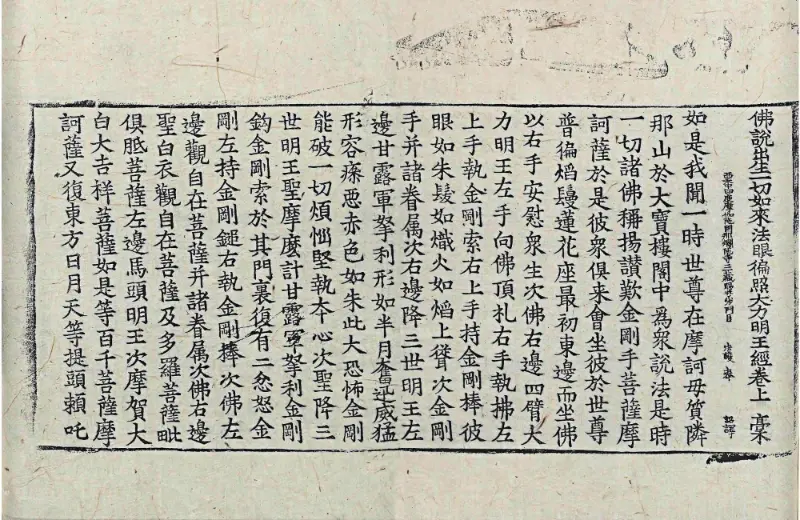 佛說出生一切如來法眼徧照大力明王經卷上
如是我聞一時世尊在摩訶毋質隣
那山於大寶樓閣中為衆說法是時
一切諸佛稱揚讃歎金剛手菩薩摩
訶薩於是彼衆俱来會坐彼於世尊
普徧熖鬘蓮花座最初東邊而坐佛
以右手安慰衆生次佛右邊四臂大
力明王左手向佛頂礼右手執拂左
上手執金剛索右上手持金剛捧彼
眼如朱髮如熾火如熖上聳次金剛
手并諸眷属次右邊降三世明王左
邊甘露軍拏利形如半月奮迅威猛
形容瘮惡赤色如朱此大恐怖金剛
能破一切煩惱堅執夲心次聖降三
世明王聖摩麽計甘露軍拏利金剛
鈎金剛索於其門裏復有二忿怒金
剛左持金剛鎚右執金剛捧次佛左
邊觀自在菩薩并諸眷属次佛右邊
聖白衣觀自在菩薩及多羅菩薩毗
俱胝菩薩左邊馬頭明王次摩賀大
白大吉祥菩薩如是等百千菩薩摩
訶薩又復東方日月天等提頭頼吒